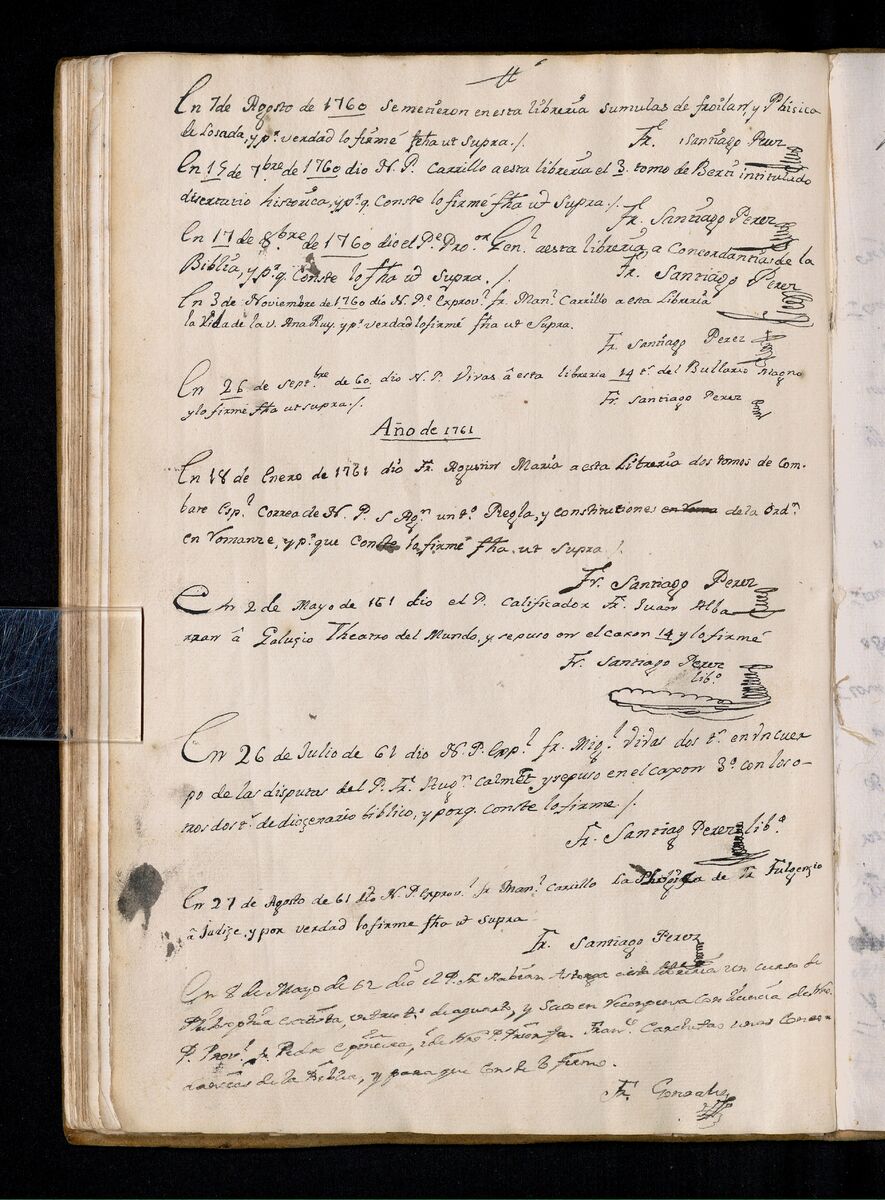 En 7 de Agosto de 1760 se metieron en esta libreria sumulas de froilan, y Phisica
de Losada, y pr. verdad lo firmé fha ut supra /. Fr. Santiago Perez
En 15 de 7bre de 1760 dio N. P. Carrillo a esta libreria el 3. tomo de Berti intitulado
disertatio historica, y pr. q. Conste lo firmé fha ut Supra /.
Fr. Santiago Perez
En 17 de 8bre de 1760 dio el Pe. Pro.or Gen.l a esta libreria a Concordantias de la
Biblia, y pr. q. Conste lo fha ut supra. /. Fr. Santiago Perez
En 3 de Noviembre de 1760 dio N. Pe. Exprov.l fr. Man.l Carrillo a esta Libreria
la Vida de la v. Ana Ruy. y pr. verdad lo firmé fha ut Supra.
Fr. Santiago Perez
En 26 de Septbre de 60. dio N. P. Vivas â esta libreria 14 t.s del Bullario Magno
y lo firmé fha ut supra /. Fr. Santiago Perez
Año de 1761
En 18 de Enero de 1761 dio Fr. Agustin Maria a esta Libreria dos tomos de Com-
bare Esp.l Correa de N. P. S Ag.n un t.o Regla, y constituciones de la Ord.n
en Romanze, y pr. que Conste lo firmé fha. ut Supra /.
Fr. Santiago Perez
En 2 de Mayo de 161 dio el P. Calificador Fr. Juan Alba
rran â Galuzio Theatro del Mundo, y se puso en el caxon 14 y lo firmé
Fr. Santiago Perez
lib.o
En 26 de Julio de 61 dio N. P. Exp.l fr. Mig.l Vivas dos t.s en vn cuer
po de las disputas del P. Fr. Aug.n Calmet y se puso en el caxon 3.o con los o-
tros dos t.s de diczenario biblico, y porq. Conste lo firme /.
Fr. Santiag Perez lib.o
En 27 de Agosto de 61 dio N. P. Exprov.l fr Man.l Carrillo La de Fr Fulgenzio
â Judize, y por verdad lo firme fha ut supra
Fr. Santiago Perez
En 8 de Mayo de 62 dio el P. Fr. Fabian a esta libreria un curso de
Philosophia y Saco en Recompensa Con licencia de Nro.
P. Prov.l fr. Pedro de Nro P. Prior Fr. Fran.co unas Concor
dancias de la Biblia, y para que Conste lo firmo.
Fr. Gonzalez